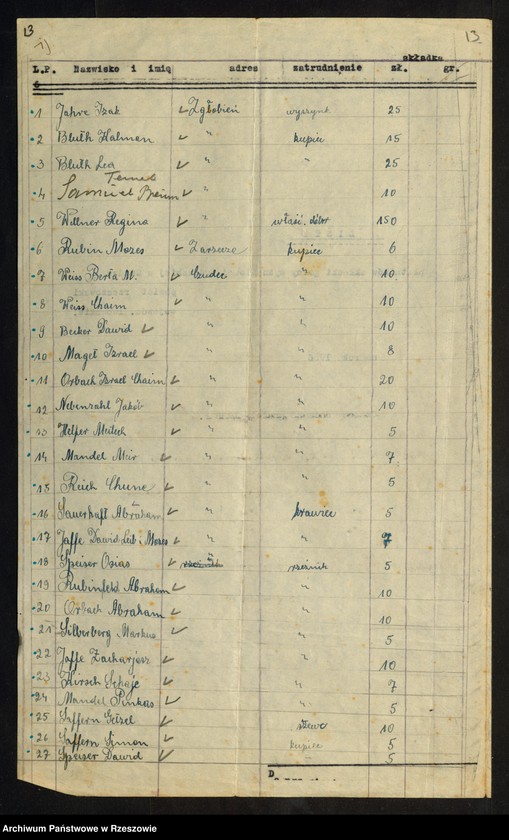 13 1) 13
składka
L.P. Nazwisko i imię adres zatrudnienie zł. gr.
1 Jahre Izak Zgłobień wyszynk 25
2 Bluth Kalman " kupiec 15
3 Bluth Lea " " 25
4 Samuel Breum " 10
5 Wellner Regina " właść. dóbr 150
6 Rubin Mozes Zarzecze kupiec 6
7 Weiss Berta M. Czudec " 10
8 Weiss Chaim " " 10
9 Becker Dawid " " 10
10 Magel Izrael " " 8
11 Orbach Izrael Chaim " " 20
12 Nebenzahl Jakób " " 10
13 Helfer Meilech " " 5
14 Mandel Meir " " 7
15 Reich Chune " " 5
16 Sauerhaft Abraham " krawiec 5
17 Jaffe Dawid Leib i Mozes " " 7
18 Speiser Osias " rzeźnik 5
19 Rubinfeld Abraham " 10
20 Orbach Abraham " 10
21 Silberberg Markus " 5
22 Jaffe Zacharjasz " 10
23 Hirsch Schaje " 7
24 Mandel Pinkas " 5
25 Saffern Getzel szewc 10
26 Saffern Simon kupiec 5
27 Speiser Dawid " 5
D
Archiwum Państwowe w Rzeszowie